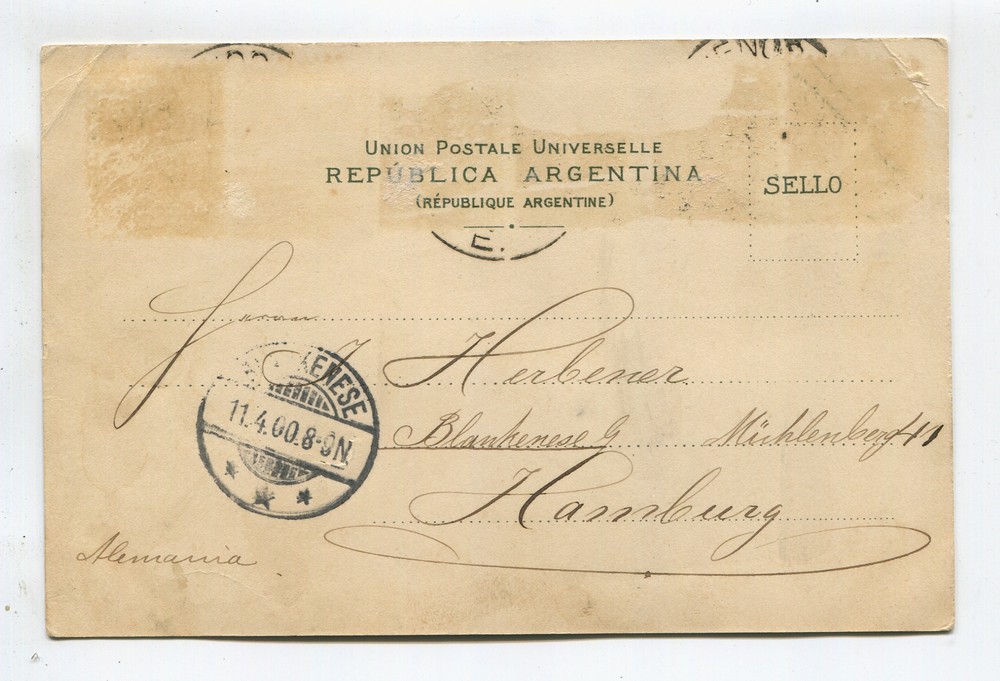 UNION POSTALE UNIVERSELLE
REPÚBLICA ARGENTINA
(RÉPUBLIQUE ARGENTINE)
SELLO
E.
Herrn
J Herbener
Blankenese Mühlenberg
Hamburg
Alemania
KENESE
11.4.00.8-9N.